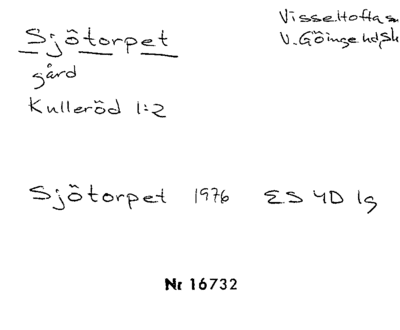 Sjötorpet
gård
Kulleröd 1:2
Visseltofta s
V. Göinge hd, Sk
Sjötorpet 1976 ES 4D 1g
Nr 16732